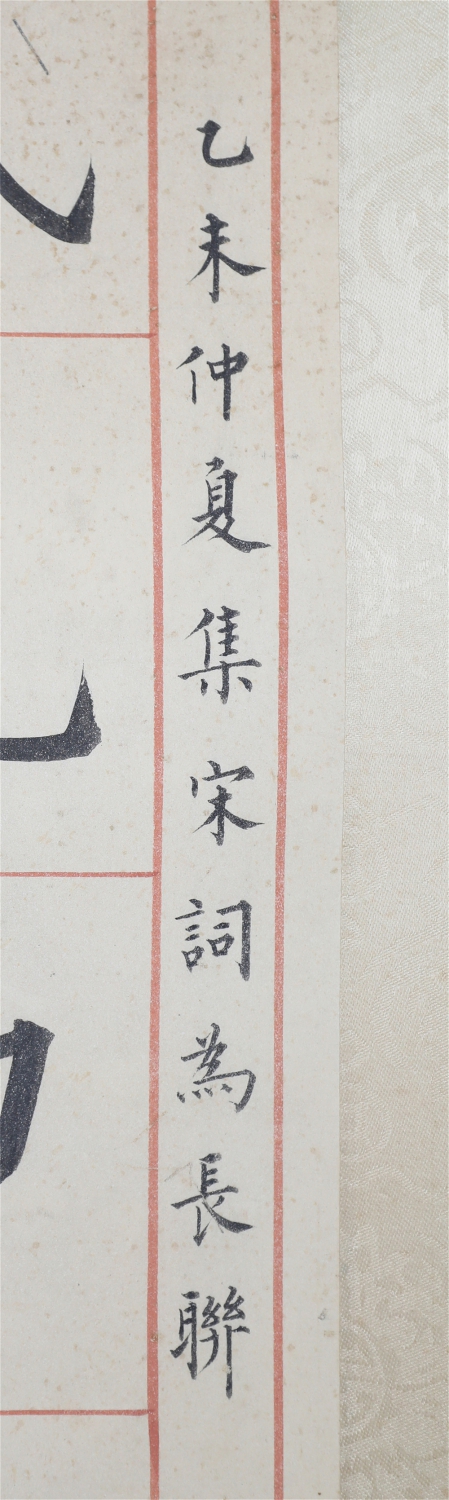 乙未仲夏集宋詞為長聯